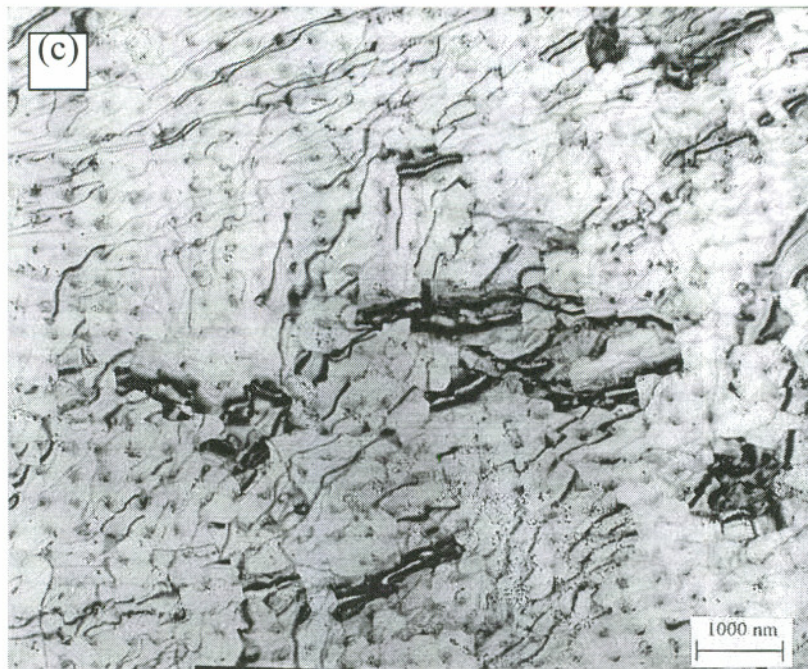 (c)
1000 nm